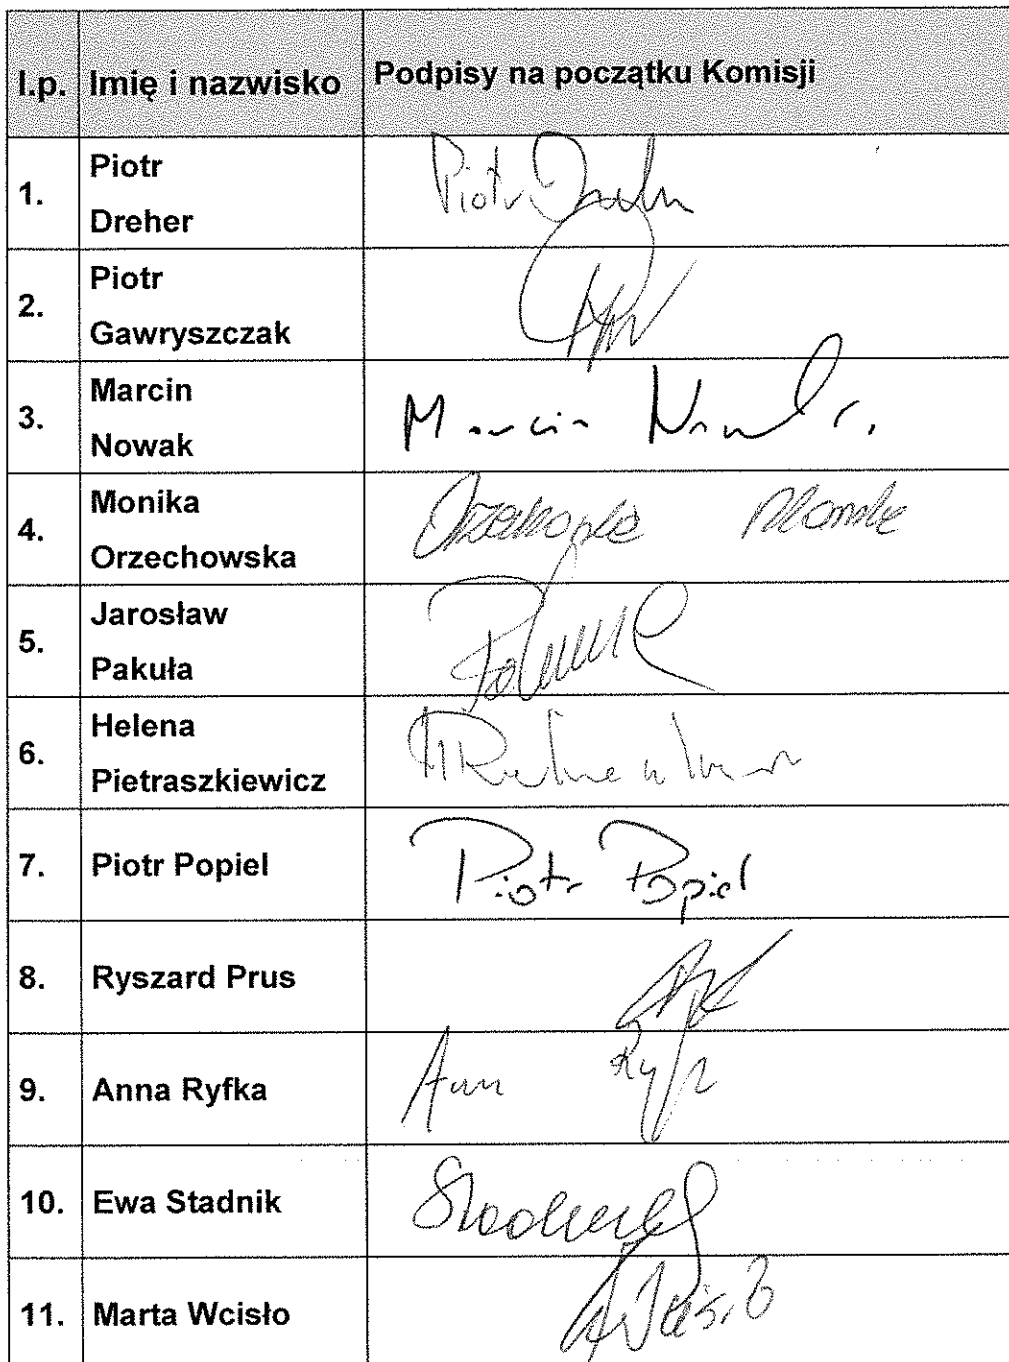 l.p. Imię i nazwisko Podpisy na początku Komisji
1. Piotr Piotr
Dreher
2. Piotr
Gawryszczak
3. Marcin Marcin Nowak
Nowak
4. Monika
Orzechowska
5. Jarosław
Pakuła
6. Helena
Pietraszkiewicz
7. Piotr Popiel Piotr Popiel
8. Ryszard Prus
9. Anna Ryfka
10. Ewa Stadnik
11. Marta Wcisło